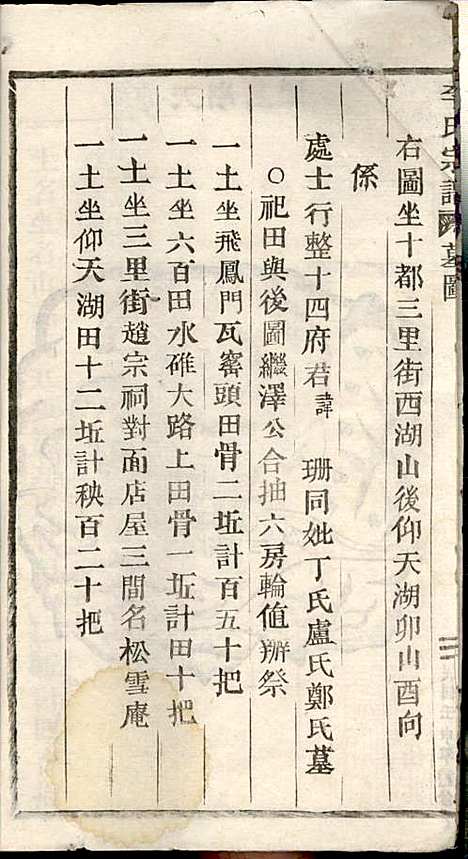 李氏宗譜 墓圖
右圖坐十都三里街西湖山後仰天湖卯山酉向
係
處士行整十四府君諱 珊同妣丁氏盧氏鄭氏墓
○祀田與後圖繼澤公合抽六房輪值辦祭
一土坐飛鳳門瓦窰頭田骨二坵計百五十把
一土坐六百田水碓大路上田骨一坵計田十把
一土坐三里街趙宗祠對面店屋三間名松雪庵
一土坐仰天湖田十二坵計秧百二十把